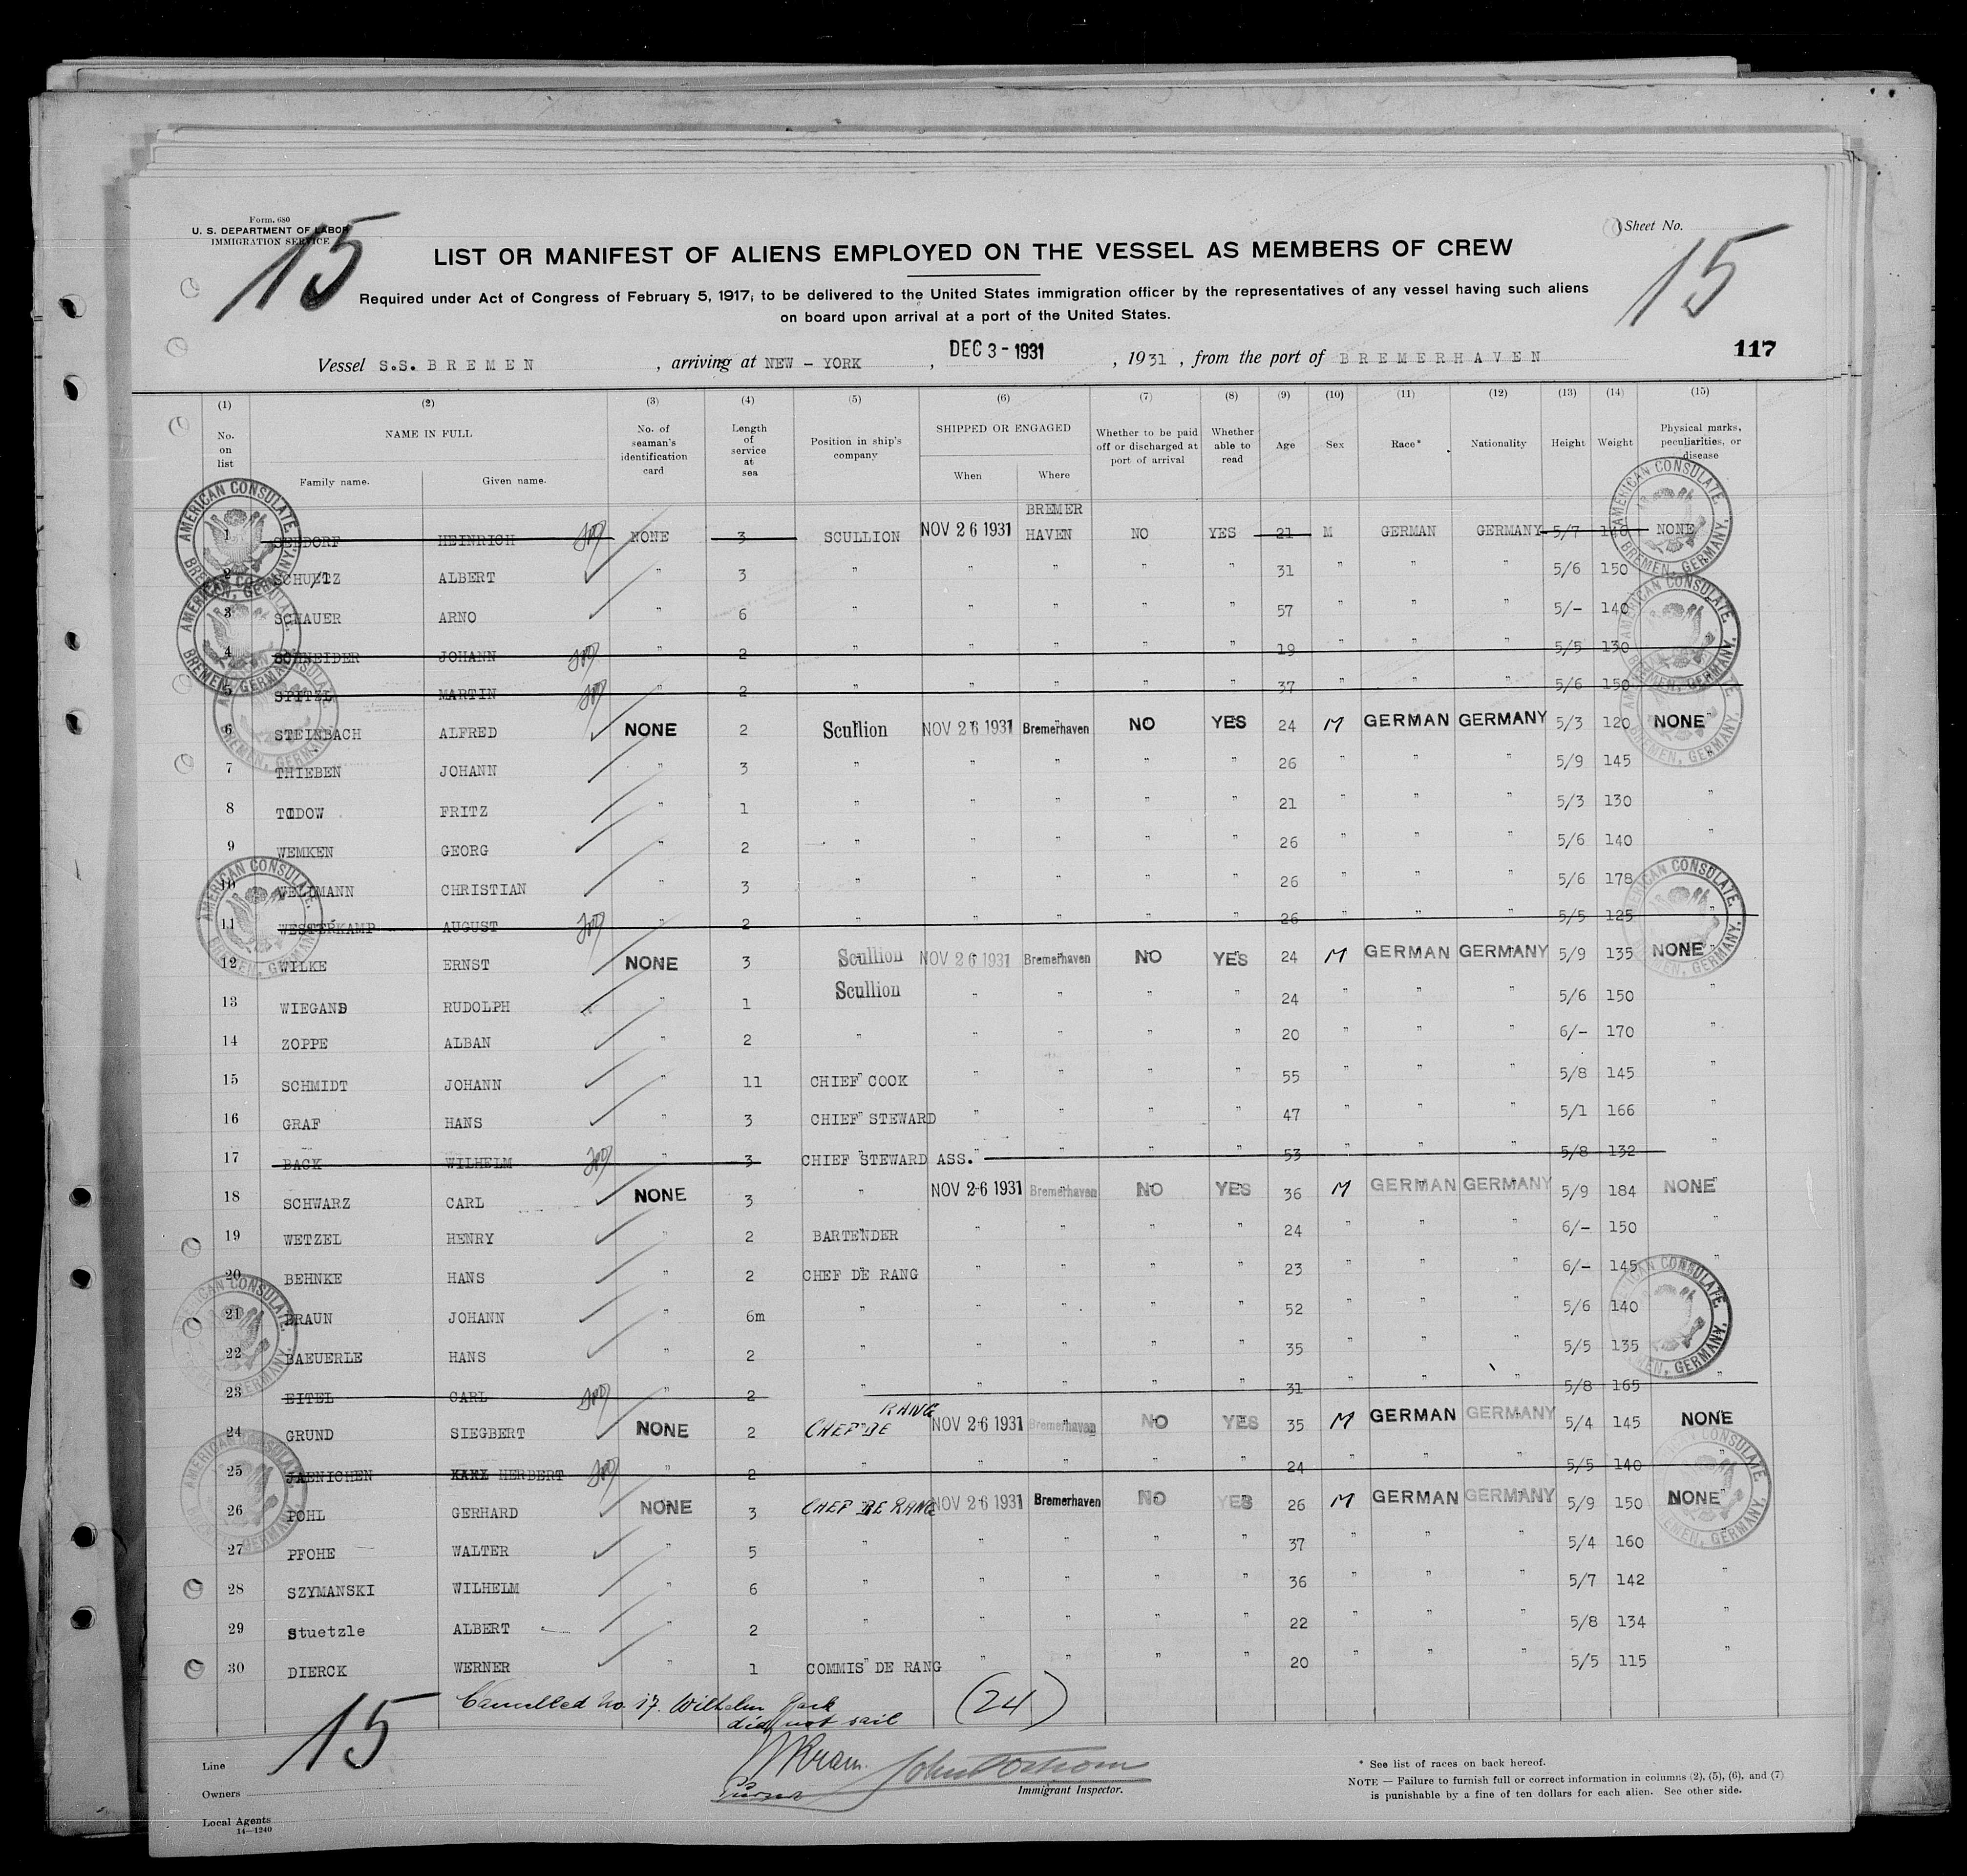 Form. 680
U. S. DEPARTMENT OF LABOR
IMMIGRATION SERVICE
15
Sheet No.
15
LIST OR MANIFEST OF ALIENS EMPLOYED ON THE VESSEL AS MEMBERS OF CREW
Required under Act of Congress of February 5, 1917, to be delivered to the United States immigration officer by the representatives of any vessel having such aliens
on board upon arrival at a port of the United States.
Vessel S.S. BREMEN , arriving at NEW - YORK , DEC 3 - 1931 , 1931 , from the port of BREMERHAVEN 117
(1) (2) (3) (4) (5) (6) (7) (8) (9) (10) (11) (12) (13) (14) (15)
No. on list NAME IN FULL Family name. Given name. No. of seaman's identification card Length of service at sea Position in ship's company SHIPPED OR ENGAGED When Where Whether to be paid off or discharged at port of arrival Whether able to read Age Sex Race* Nationality Height Weight Physical marks, peculiarities, or disease
1 SEEDORF HEINRICH NONE 3 SCULLION NOV 26 1931 BREMER HAVEN NO YES 21 M GERMAN GERMANY 5/7 140 NONE
2 SCHUETZ ALBERT " 3 " " " " " 31 " " " 5/6 150
3 SCHAUER ARNO " 6 " " " " " 57 " " " 5/- 140
4 SCHNEIDER JOHANN " 2 " " " " " 19 " " " 5/5 130
5 SPITEL MARTIN " 2 " " " " " 37 " " " 5/6 150
6 STEINBACH ALFRED NONE 2 Scullion NOV 26 1931 Bremerhaven NO YES 24 M GERMAN GERMANY 5/3 120 NONE
7 THIEBEN JOHANN " 3 " " " " " 26 " " " 5/9 145 "
8 TODOW FRITZ " 1 " " " " " 21 " " " 5/3 130 "
9 WEMKEN GEORG " 2 " " " " " 26 " " " 5/6 140 "
10 WELLMANN CHRISTIAN " 3 " " " " " 26 " " " 5/6 178
11 WESTERKAMP AUGUST " 2 " " " " " 26 " " " 5/5 125 "
12 WILKE ERNST NONE 3 Scullion NOV 26 1931 Bremerhaven NO YES 24 M GERMAN GERMANY 5/9 135 NONE
13 WIEGAND RUDOLPH " 1 Scullion " " " " 24 " " " 5/6 150 "
14 ZOPPE ALBAN " 2 " " " " " 20 " " " 6/- 170 "
15 SCHMIDT JOHANN " 11 CHIEF COOK " " " " 55 " " " 5/8 145 "
16 GRAF HANS " 3 CHIEF STEWARD " " " " 47 " " " 5/1 166 "
17 BACK WILHELM " 3 CHIEF STEWARD ASS. " " " " 53 " " " 5/8 132 "
18 SCHWARZ CARL NONE 3 " NOV 26 1931 Bremerhaven NO YES 36 M GERMAN GERMANY 5/9 184 NONE
19 WETZEL HENRY " 2 BARTENDER " " " " 24 " " " 6/- 150 "
20 BEHNKE HANS " 2 CHEF DE RANG " " " " 23 " " " 6/- 145 "
21 BRAUN JOHANN " 6m " " " " " 52 " " " 5/6 140
22 BAEUERLE HANS " 2 " " " " " 35 " " " 5/5 135
23 EITEL CARL " 2 " " " " " 31 " " " 5/8 165 "
24 GRUND SIEGBERT NONE 2 CHEF DE RANG NOV 26 1931 Bremerhaven NO YES 35 M GERMAN GERMANY 5/4 145 NONE
25 JAENICHEN KARL HERBERT " 2 " " " " " 24 " " " 5/5 140 "
26 POHL GERHARD NONE 3 CHEF DE RANG NOV 26 1931 Bremerhaven NO YES 26 M GERMAN GERMANY 5/9 150 NONE
27 PFOHE WALTER " 5 " " " " " 37 " " " 5/4 160 "
28 SZYMANSKI WILHELM " 6 " " " " " 36 " " " 5/7 142 "
29 Stuetzle ALBERT " 2 " " " " " 22 " " " 5/8 134 "
30 DIERCK WERNER " 1 COMMIS DE RANG " " " " 20 " " " 5/5 115 "
AMERICAN CONSULATE, BREMEN, GERMANY.
15
Cancelled No. 17. Wilhelm Back
did not sail
(24)
Purser
Immigrant Inspector.
Line
Owners
Local Agents
14—1240
* See list of races on back hereof.
NOTE — Failure to furnish full or correct information in columns (2), (5), (6), and (7)
is punishable by a fine of ten dollars for each alien. See other side.